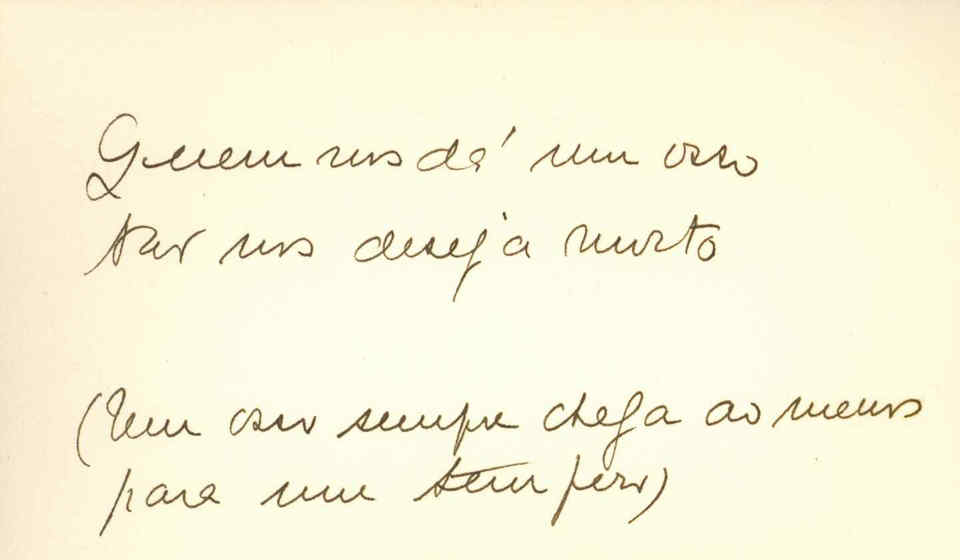 Quem nos dá um osso
não nos deseja morto
(Um osso sempre chega ao menos
para um tempero)